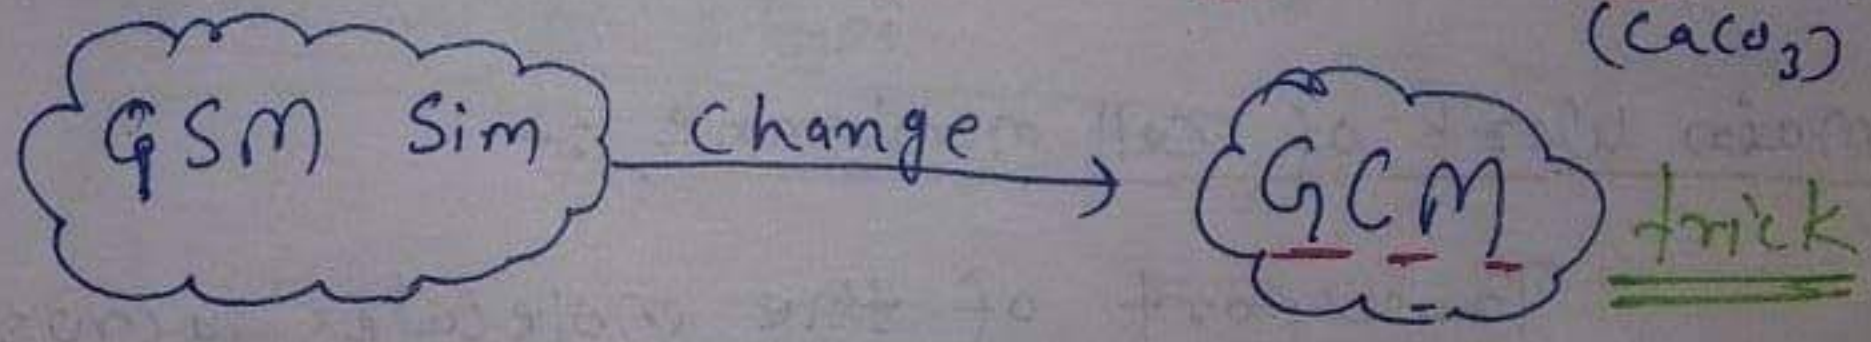 (CaCO3)
GSM Sim Change GCM
trick